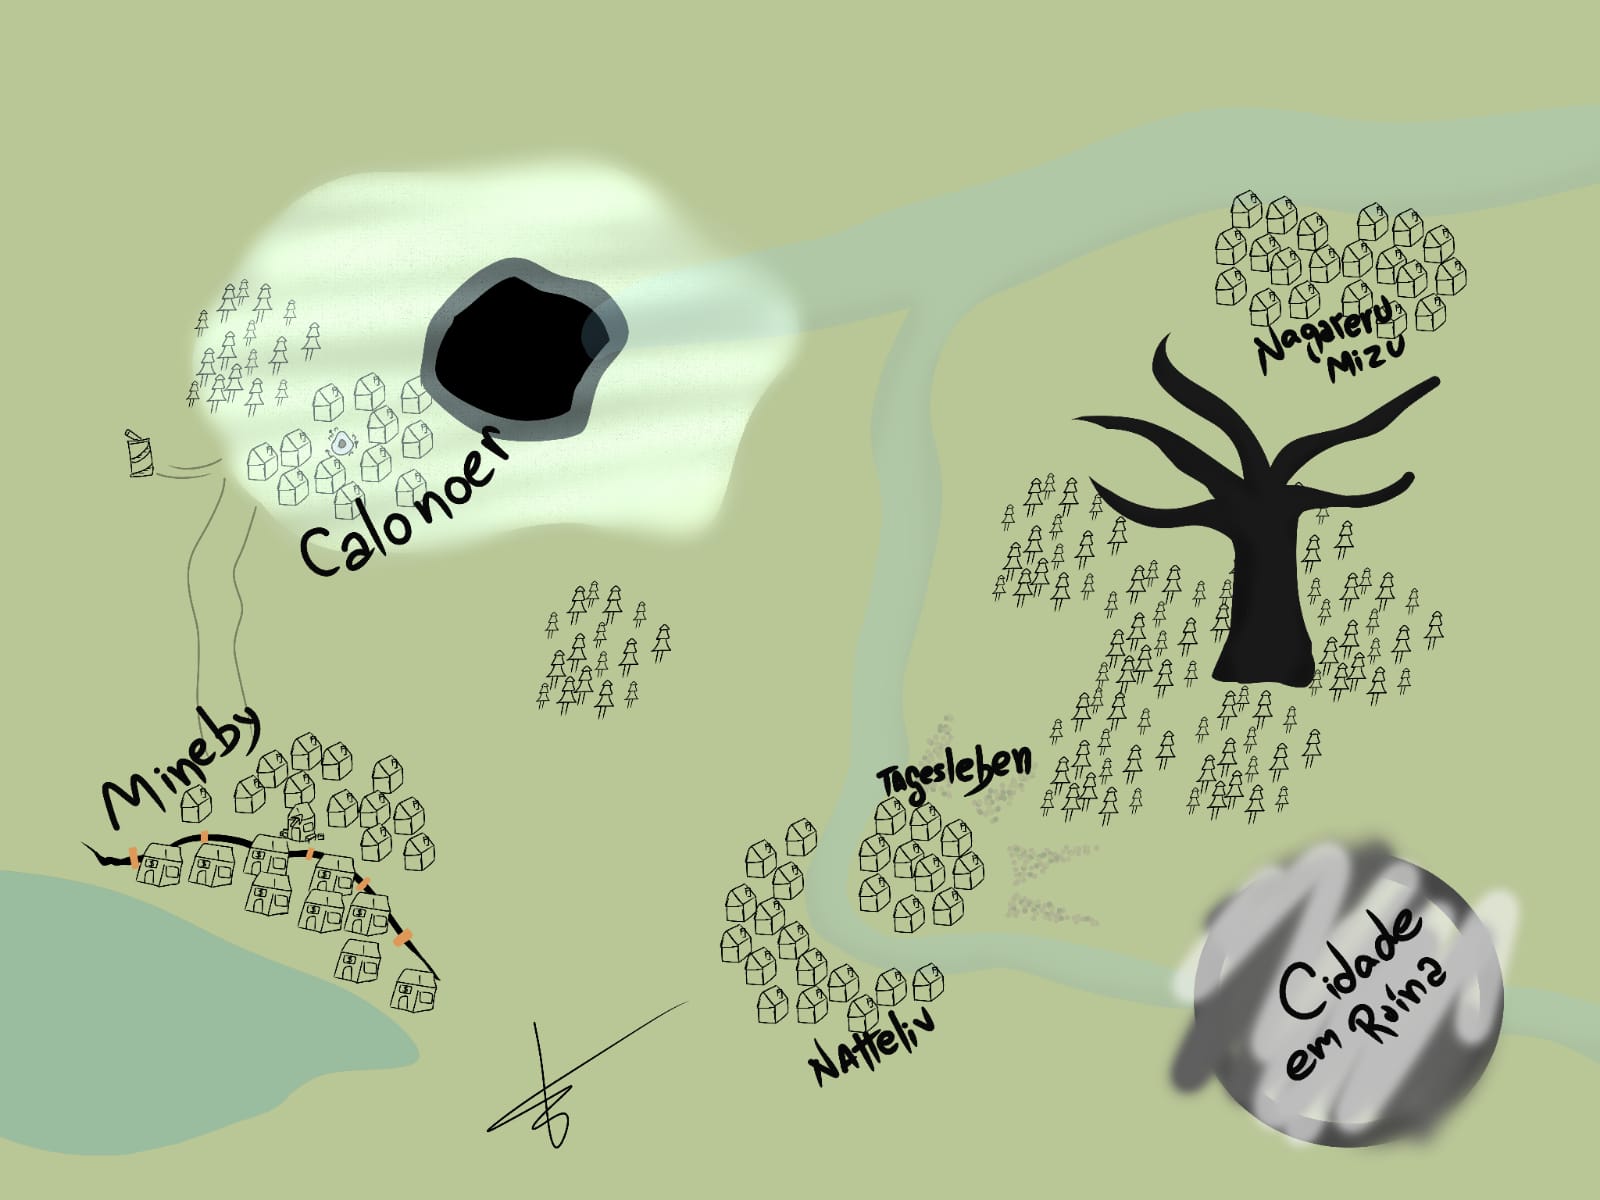 Nagareru
Mizu
Calonoer
Mineby
Tagesleben
Natteliv
Cidade
em Ruína